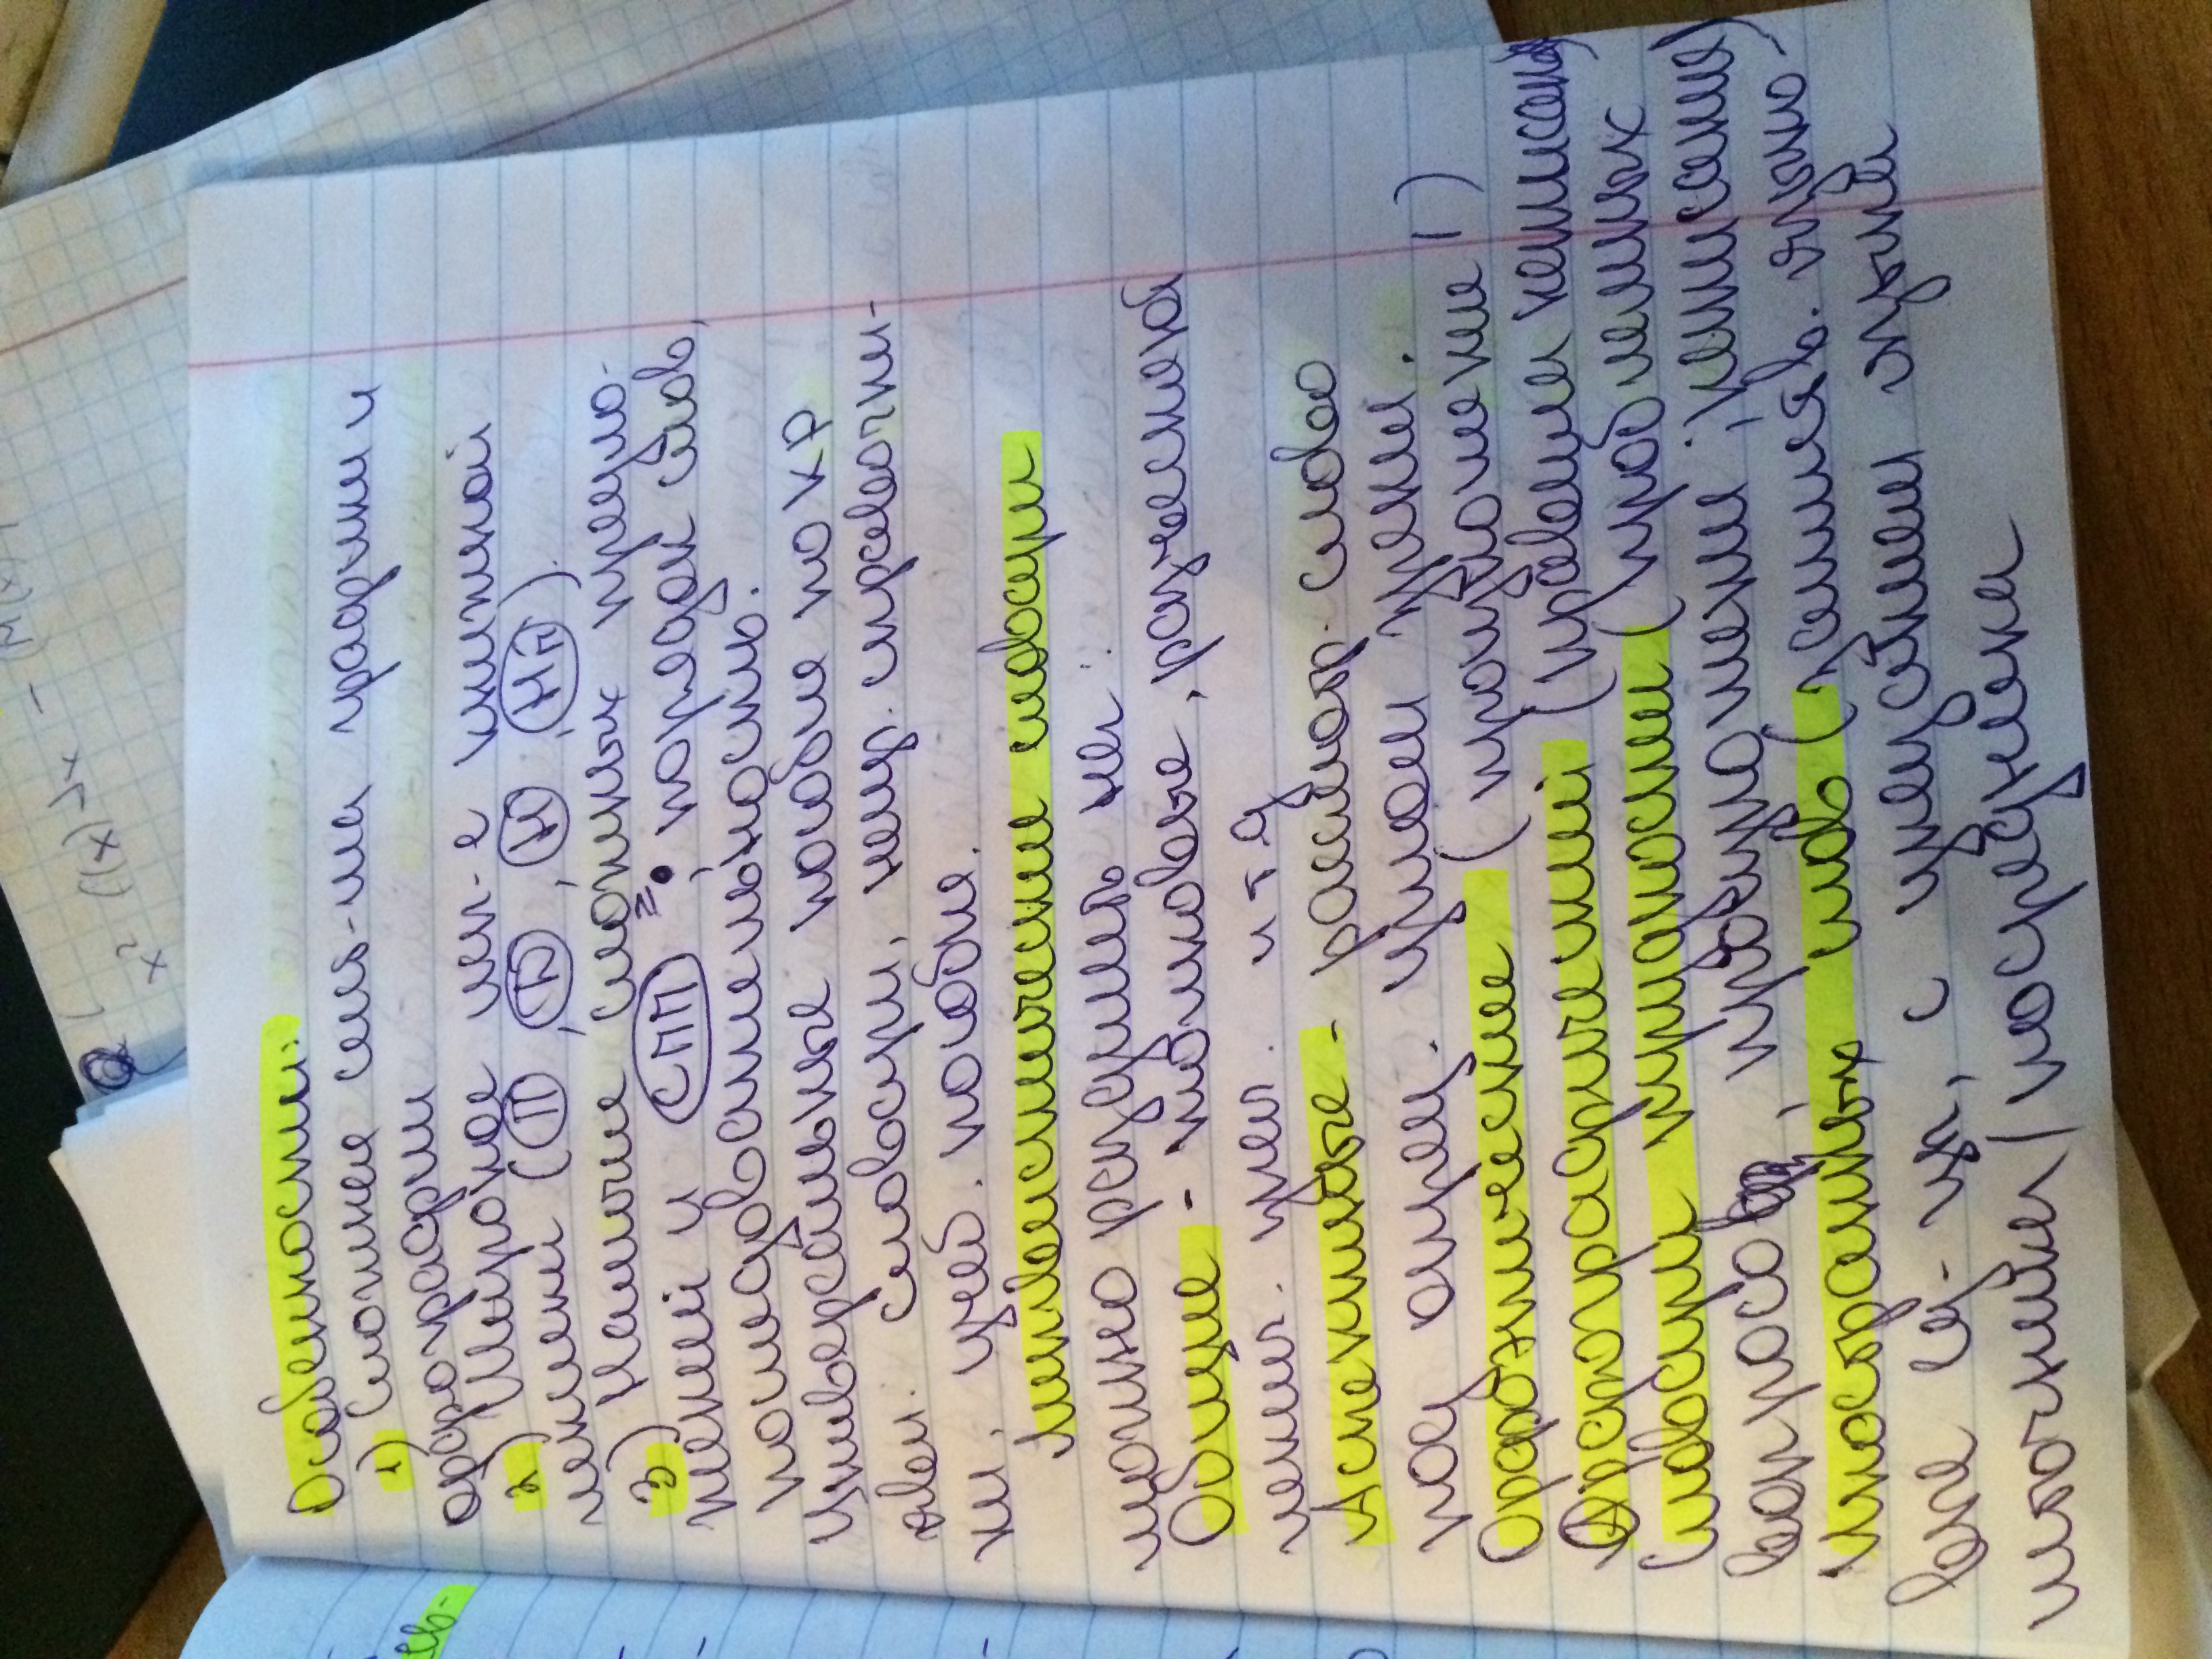 x² f(x) dx - (M(x)
Особенности:
1) Сложная сист-ма графики и
орфографии
2) Широкое исп-е книжной
лексики (П, Д, Н, Нп).
3) Наличие сложных предло-
жений и СПП, порядок слов,
последовательность.
Универсальные пособие по КР
явл. словари, спец. справочни-
ки, учеб. пособие.
Лингвистические словари
можно разделить на:
Общие - толковые, разъясняют
лексич. знач. и т д
Аспектные - рассмотр. слово
под опред. углом зрени.
Орфоэпические (произношение!)
Орфографический (правила написания)
Словари трудностей (проблемных
вопросов, произношение, написание)
Иностранных слов (заимств. языко-
вые ед-цы, с указанием языка
источника/посредника